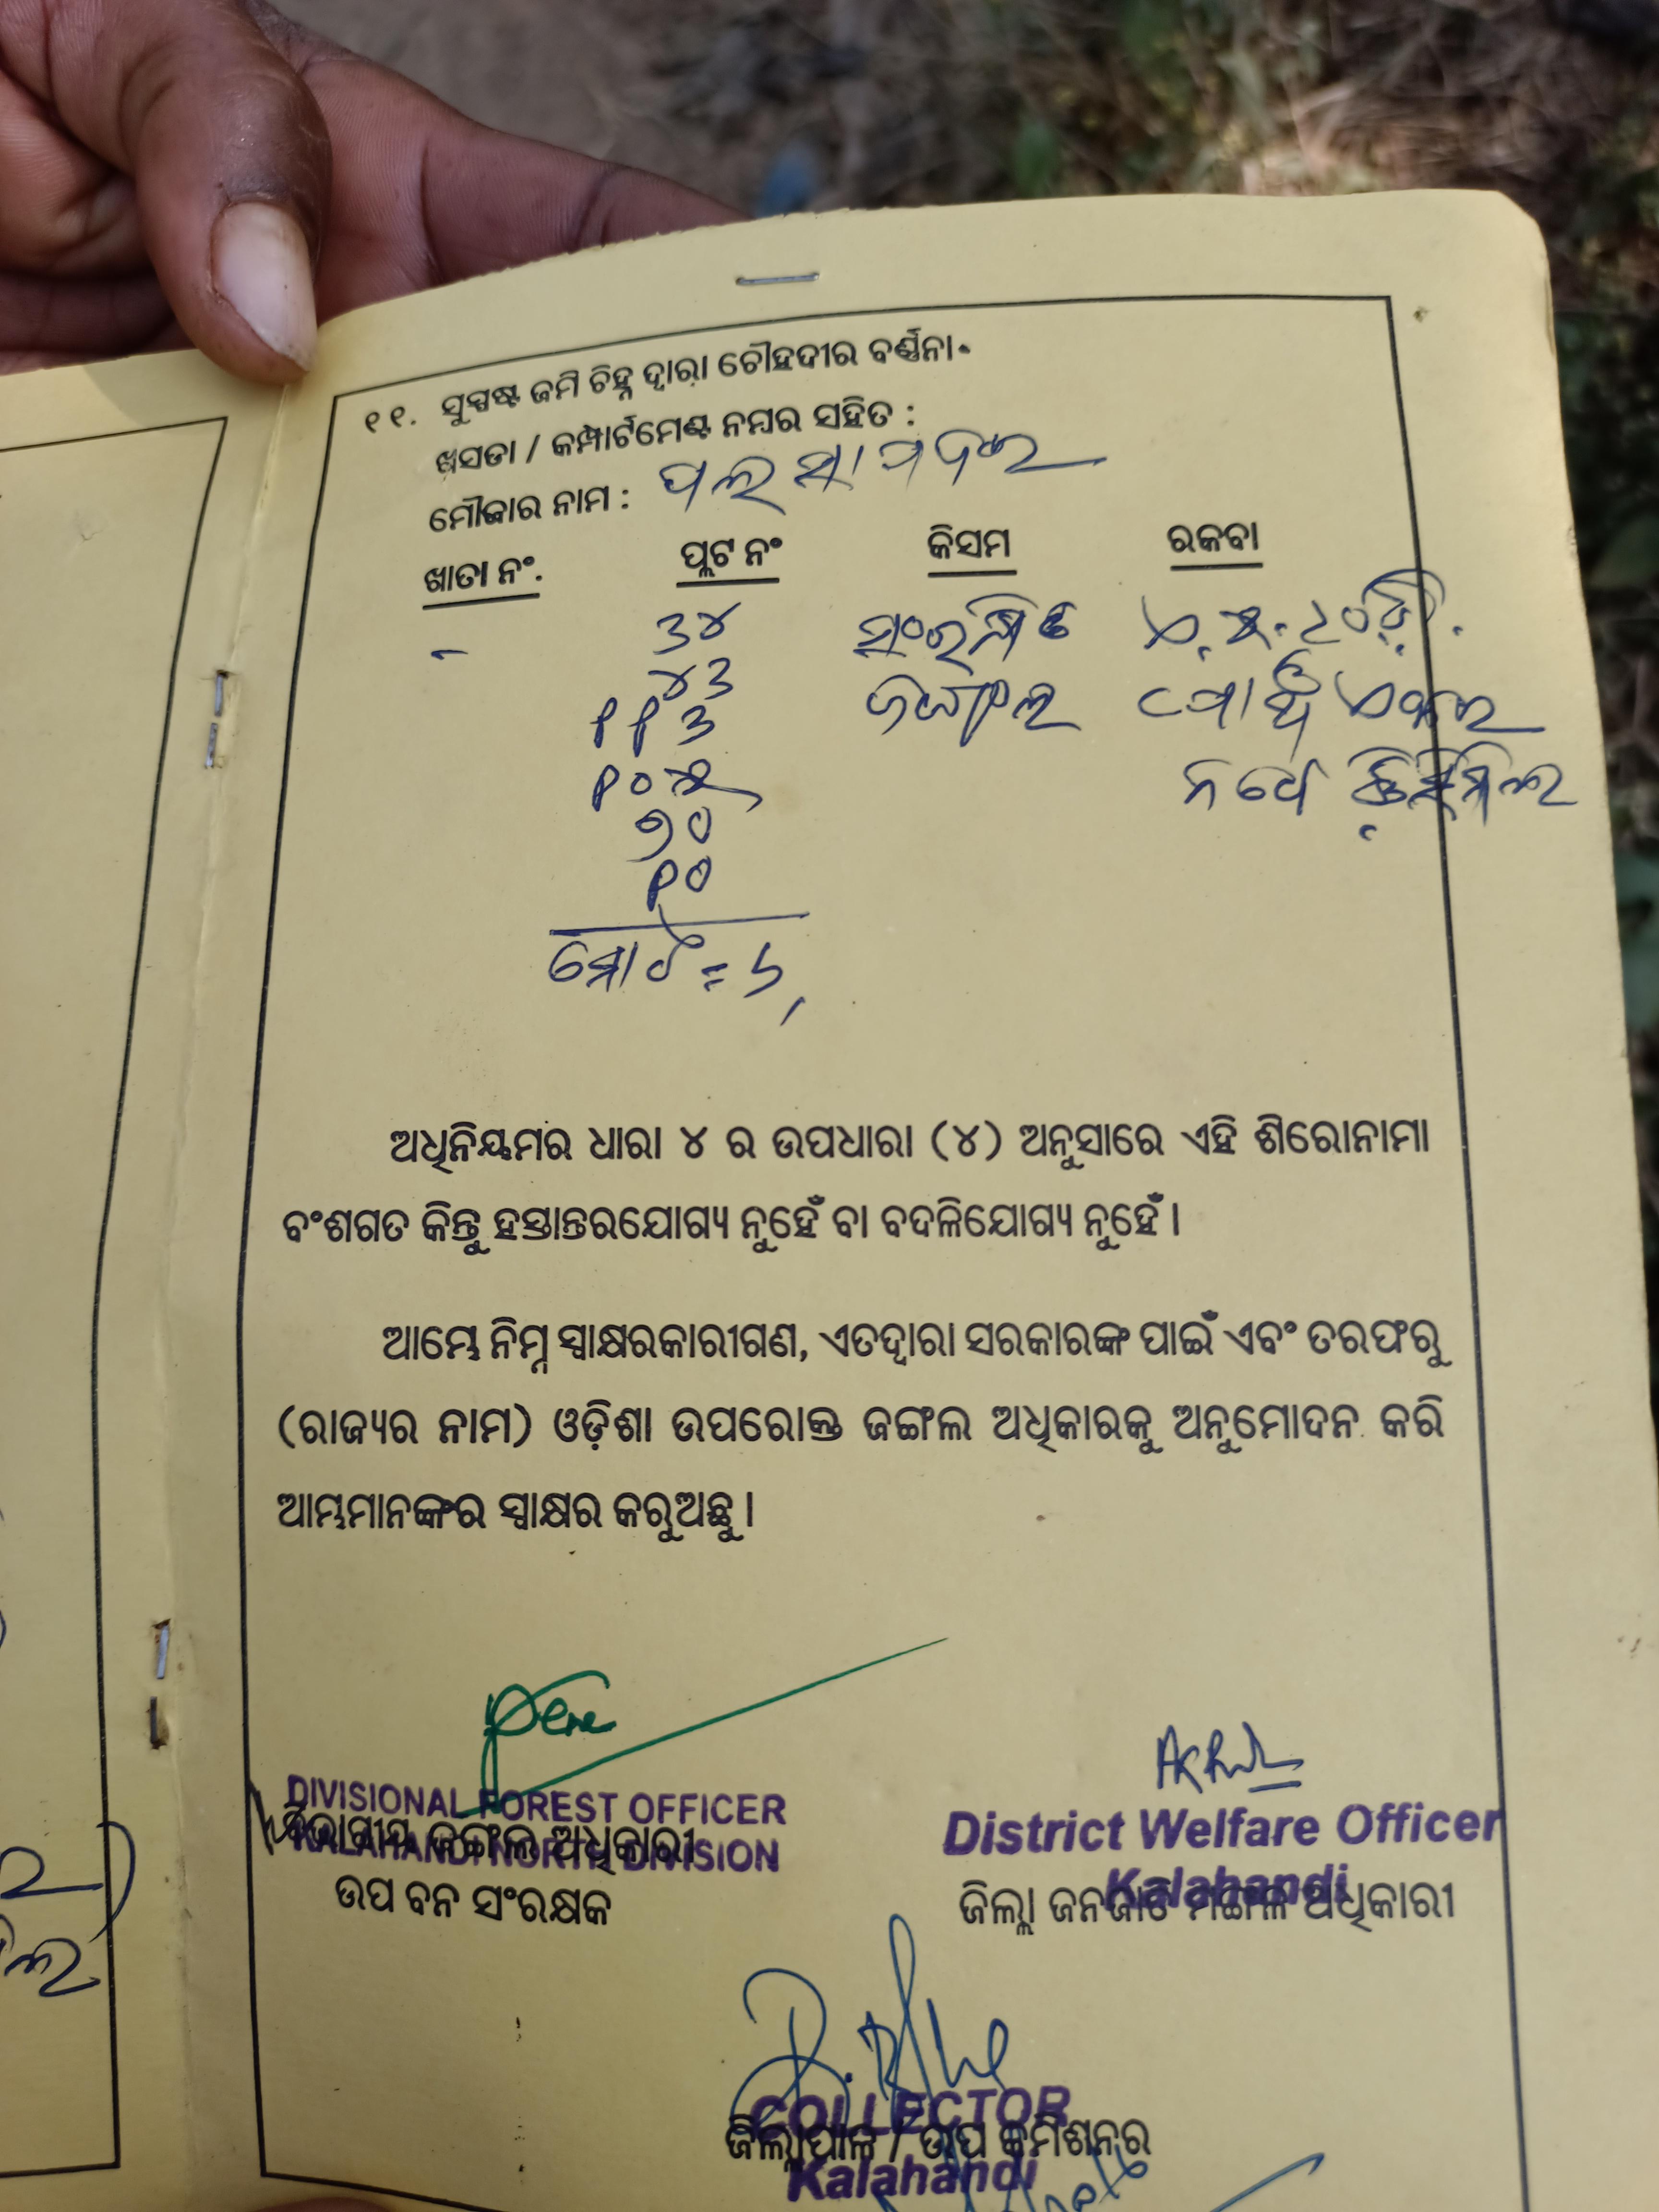 ୧୧. ସୁସ୍ପଷ୍ଟ ଜମି ଚିହ୍ନ ଦ୍ୱାରା ଚୌହଦୀର ବର୍ଣ୍ଣନା
ଖସଡା / କମ୍ପାର୍ଟମେଣ୍ଟ ନମ୍ବର ସହିତ :
ମୌଜାର ନାମ : ପଲସାପଦର
ଖାତା ନଂ. ପ୍ଲଟ ନଂ କିସମ ରକବା
- ୩୪ ସଂରକ୍ଷିତ
୪୩ ଜଙ୍ଗଲ
୧୧୩
୧୦୫
୭୦
୧୦
ମୋଟ = ୬
ଅଧିନିୟମର ଧାରା ୪ ର ଉପଧାରା (୪) ଅନୁସାରେ ଏହି ଶିରୋନାମା
ବଂଶଗତ କିନ୍ତୁ ହସ୍ତାନ୍ତରଯୋଗ୍ୟ ନୁହେଁ ବା ବଦଳିଯୋଗ୍ୟ ନୁହେଁ।
ଆମ୍ଭେ ନିମ୍ନ ସ୍ୱାକ୍ଷରକାରୀଗଣ, ଏତଦ୍ୱାରା ସରକାରଙ୍କ ପାଇଁ ଏବଂ ତରଫରୁ
(ରାଜ୍ୟର ନାମ) ଓଡ଼ିଶା ଉପରୋକ୍ତ ଜଙ୍ଗଲ ଅଧିକାରକୁ ଅନୁମୋଦନ କରି
ଆମ୍ଭମାନଙ୍କର ସ୍ୱାକ୍ଷର କରୁଅଛୁ।
DIVISIONAL FOREST OFFICER
ବିଭାଗୀୟ ଜଙ୍ଗଲ ଅଧିକାରୀ
KALAHANDI NORTH DIVISION
ଉପ ବନ ସଂରକ୍ଷକ
District Welfare Officer
Kalahandi
ଜିଲ୍ଲା ଜନଜାତି ମଙ୍ଗଳ ଅଧିକାରୀ
COLLECTOR
ଜିଲ୍ଲାପାଳ / ଉପ କମିଶନର
Kalahandi